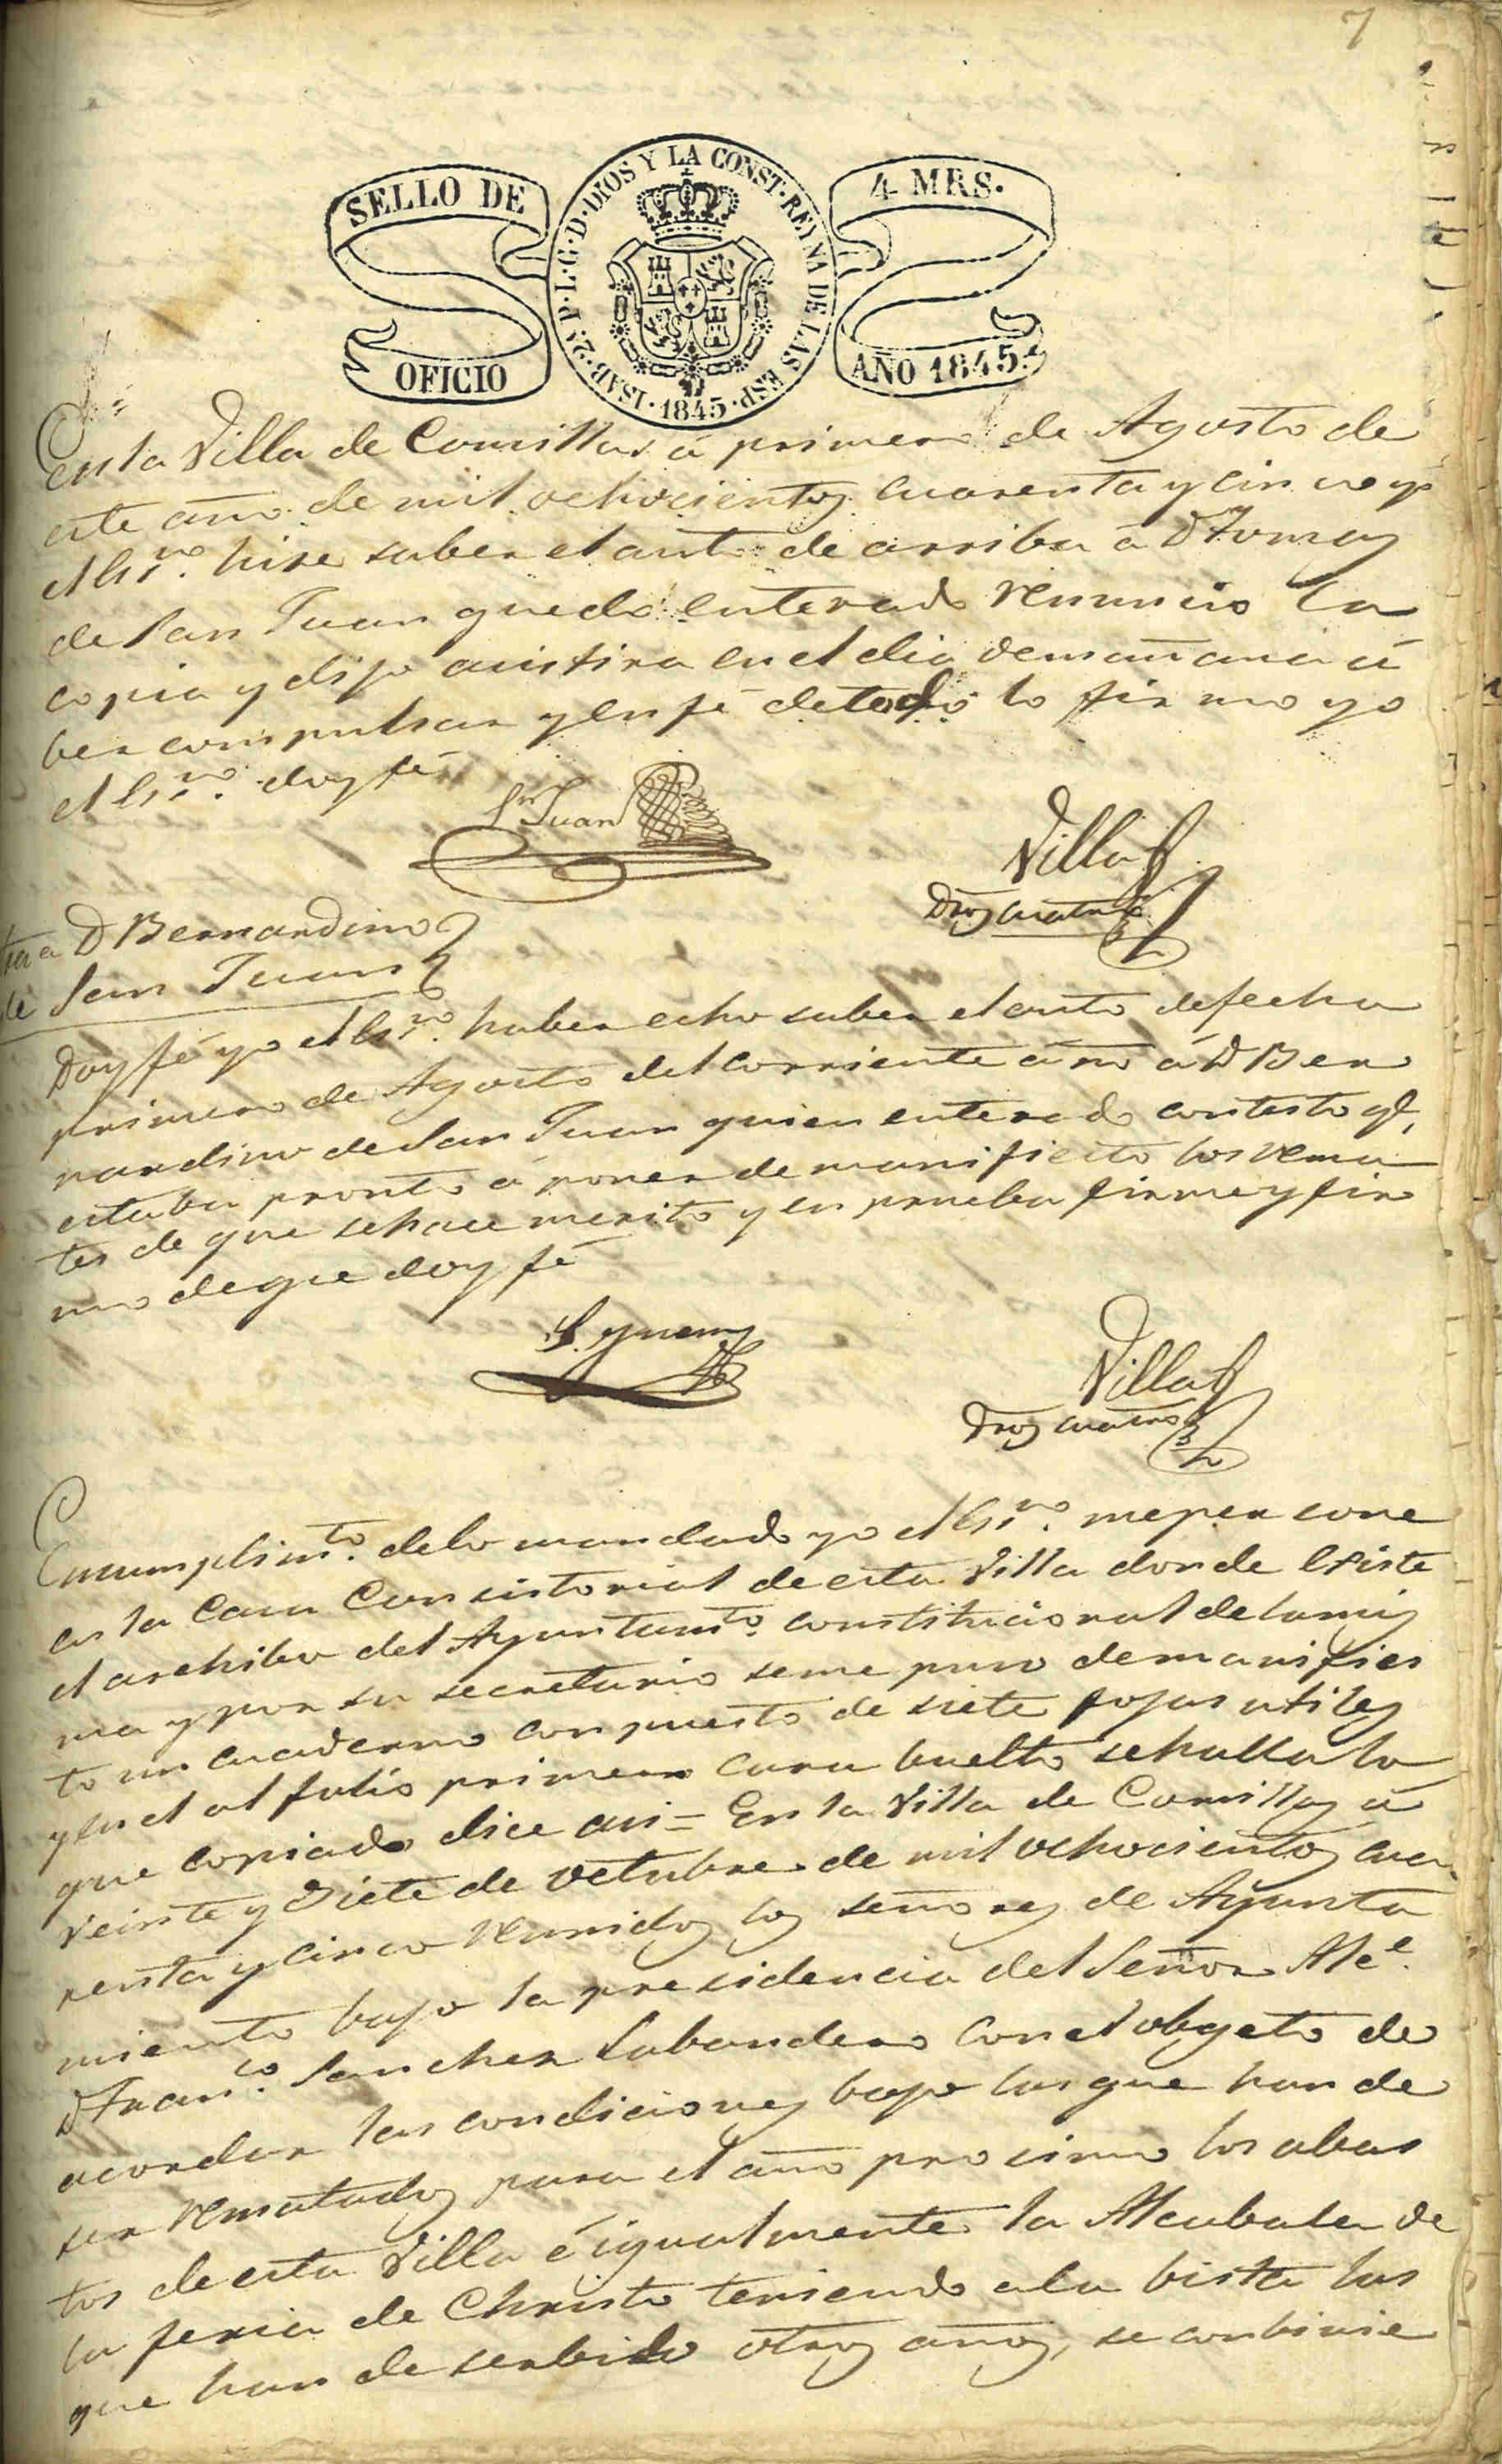 7
SELLO DE OFICIO
ISAB. 2ª P. L. G. D. DIOS Y LA CONST. REYNA DE LAS ESP. 1845.
4 MRS. AÑO 1845.
En la Villa de Comillas á primero de Agosto de
este año de mil ochocientos cuarenta y cinco yo
el Es.no hise saber el auto de arriba á D Tomas
de San Juan quedó enterado renuncio la
copia y dijo asistira en el dia de mañana á
ber compulsar y en fé de todo lo firmo yo
el Es.no doy fé
Sn Juan
Villa
Dros cuatro
a D Bernardino
de San Juan
Doy fé yo el Es.no haber echo saber el auto de fecha
primero de Agosto del corriente año á D Ber
nardino de San Juan quien enterado contesto qe
estaba pronto á poner de manifiesto los rema
tes de que se hace merito y en prueba firme y fir
mo de que doy fé
S. Juan
Villa
Dros cuatro
En cumplim.to de lo mandado yo el Es.no me persone
en la Casa Consistorial de esta Villa donde existe
el archibo del Ayuntam.to constitucional de la mis
ma y por su secretario se me puso de manifies
to un cuaderno conpuesto de siete fojas utiles
y en el al folio primero cara buelta se halla lo
que copiado dice asi = En la Villa de Comillas á
veinte y siete de octubre de mil ochocientos cua
renta y cinco reunidos los señores de Ayunta
miento bajo la presidencia del Señor Alc.e
D Fran.co Sanchez Labandero con el obgeto de
acordar las condiciones bajo las que han de
ser rematados para el año procimo los abas
tos de esta Villa é igualmente la Alcabala de
la feria de Christo teniendo a la bista las
que han de serbido otros años, se conbinie